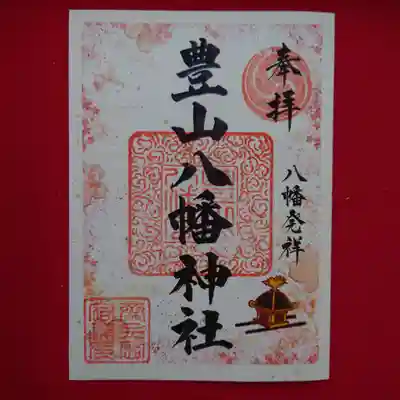 奉拝
八幡発祥
豊山八幡神社